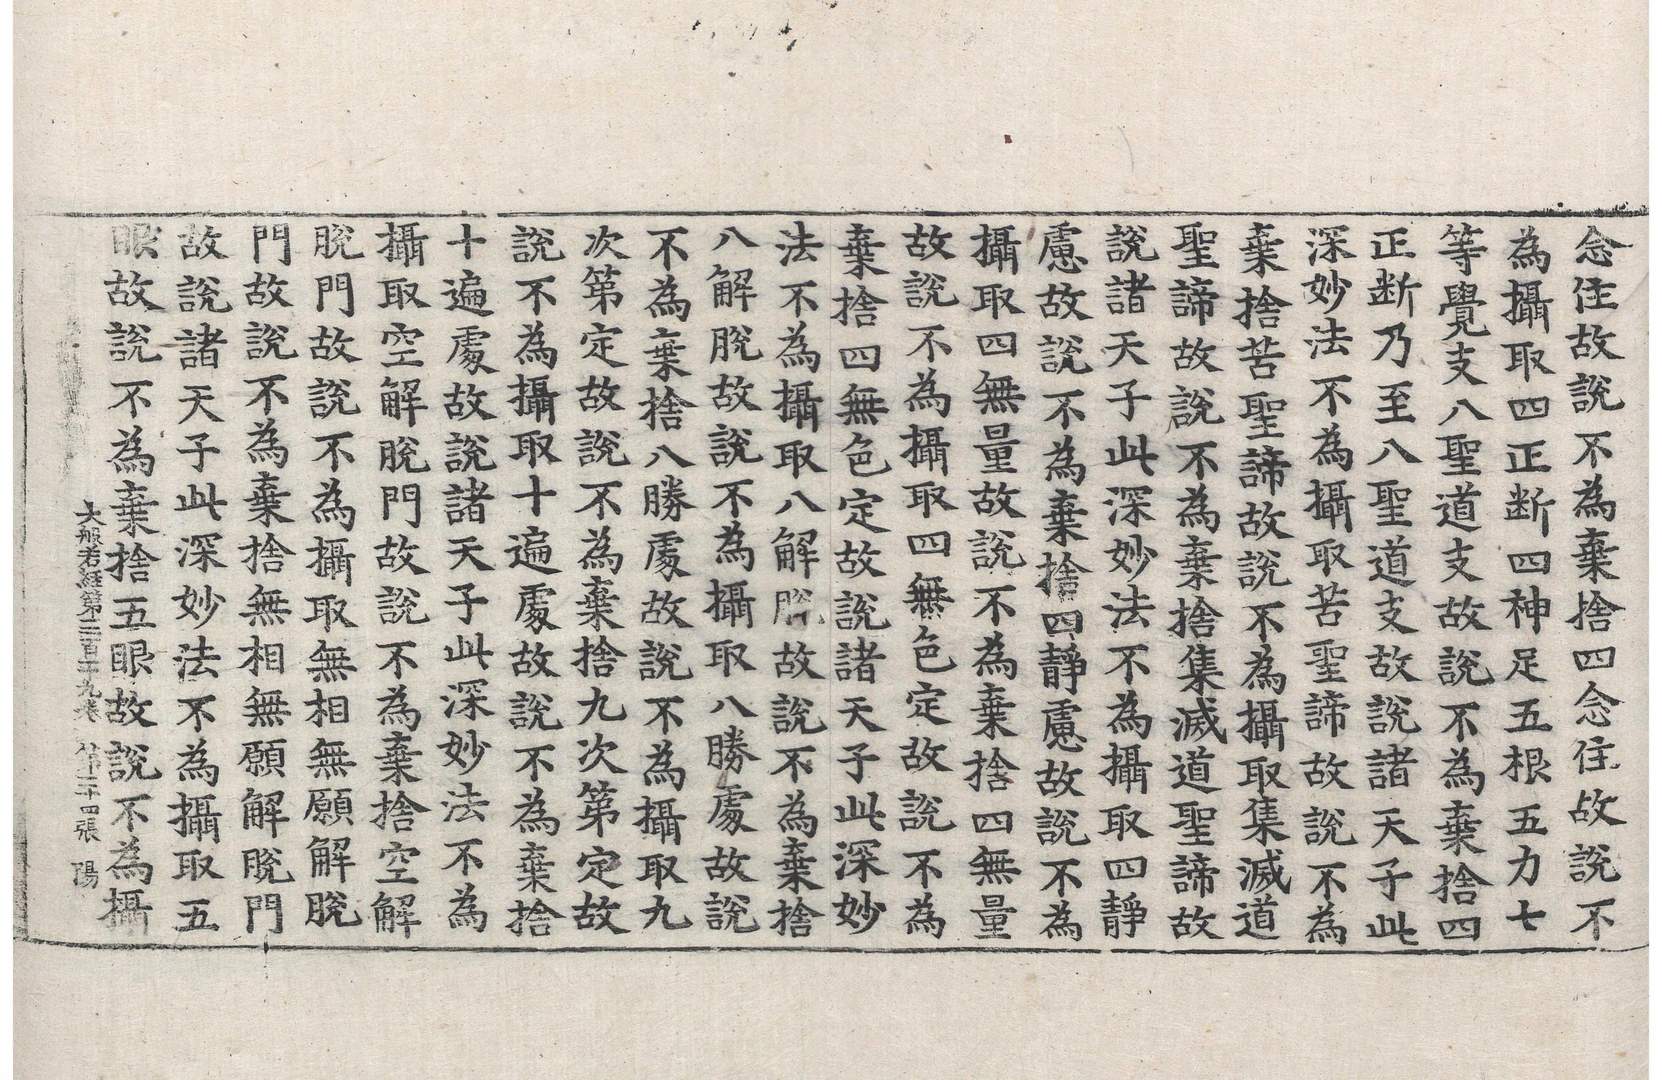 念住故說不為棄捨四念住故說不
為攝取四正断四神足五根五力七
等覺支八聖道支故說不為棄捨四
正断乃至八聖道支故說諸天子此
深妙法不為攝取苦聖諦故說不為
棄捨苦聖諦故說不為攝取集滅道
聖諦故說不為棄捨集滅道聖諦故
說諸天子此深妙法不為攝取四靜
慮故說不為棄捨四靜慮故說不為
攝取四無量故說不為棄捨四無量
故說不為攝取四無色定故說不為
棄捨四無色定故說諸天子此深妙
法不為攝取八解脫故說不為棄捨
八解脫故說不為攝取八勝處故說
不為棄捨八勝處故說不為攝取九
次第定故說不為棄捨九次第定故
說不為攝取十遍處故說不為棄捨
十遍處故說諸天子此深妙法不為
攝取空解脫門故說不為棄捨空解
脫門故說不為攝取無相無願解脫
門故說不為棄捨無相無願解脫門
故說諸天子此深妙法不為攝取五
眼故說不為棄捨五眼故說不為攝
大般若經第三百十九卷 第二十四張 陽